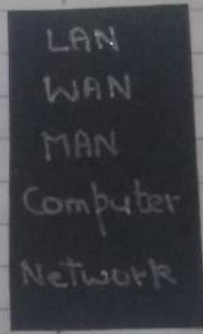 LAN
WAN
MAN
Computer
Network